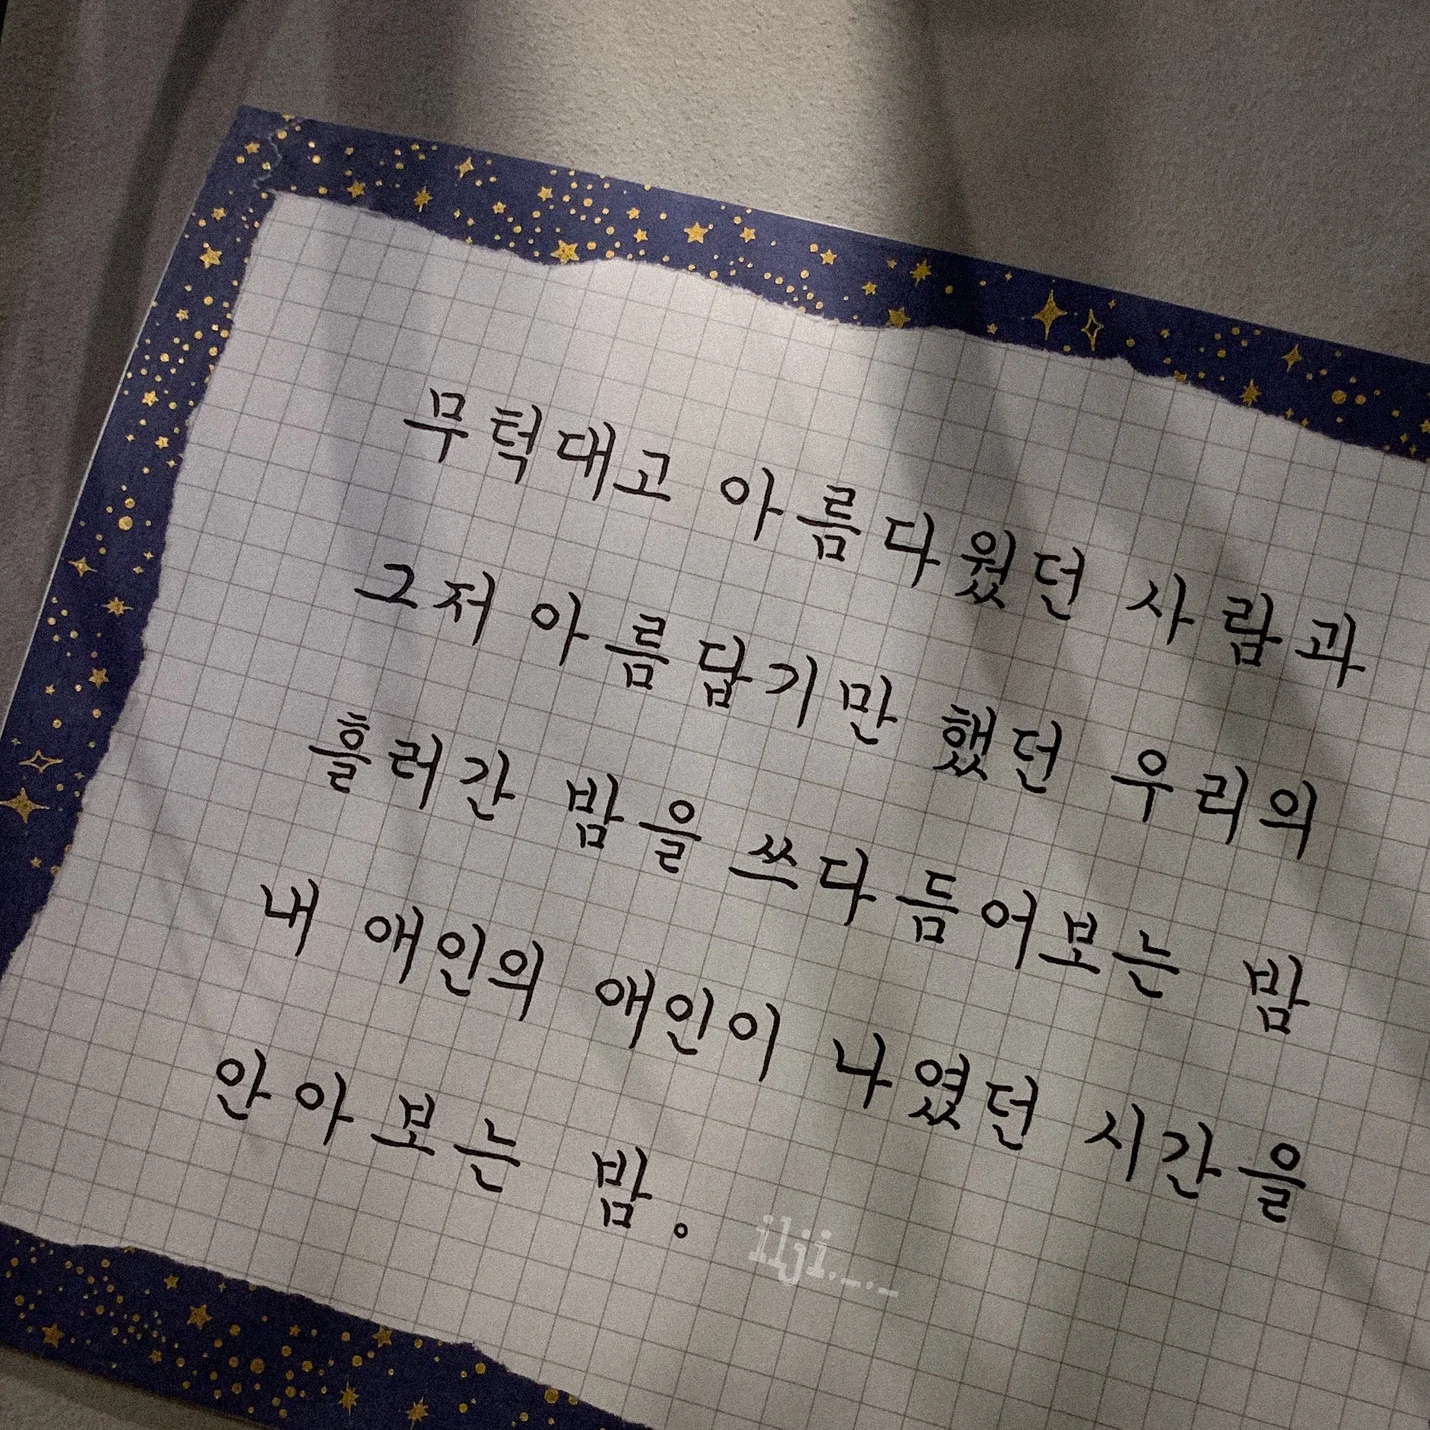 무턱대고 아름다웠던 사람과
그저 아름답기만 했던 우리의
흘러간 밤을 쓰다듬어보는 밤
내 애인의 애인이 나였던 시간을
안아보는 밤。
ilji._._